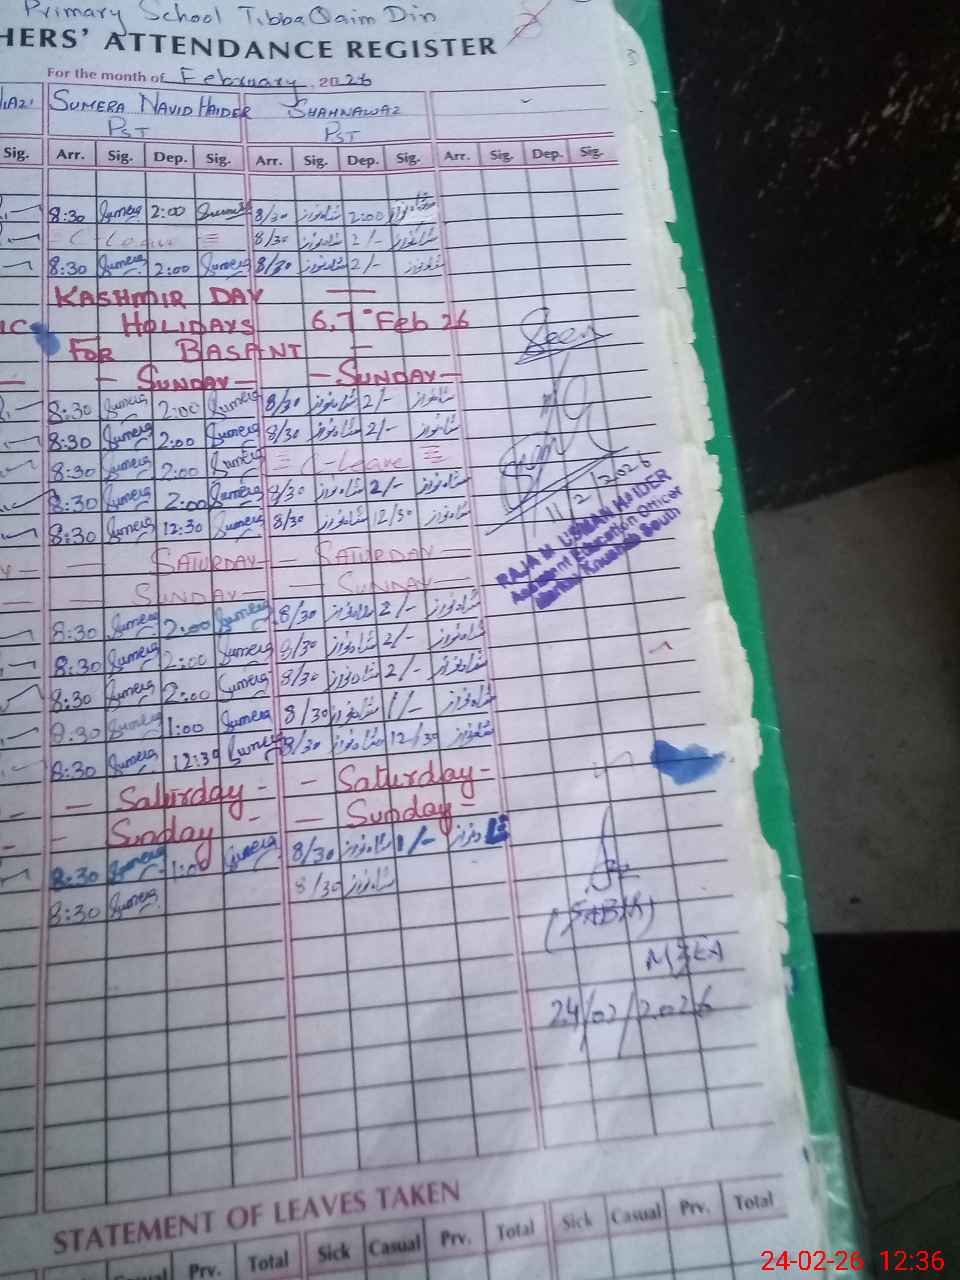 Primary School Tibba Qaim Din
HERS' ATTENDANCE REGISTER
For the month of February 2026
SUMERA NAVID HAIDER SHAHNAWAZ
PST PST
Sig. Arr. Sig. Dep. Sig. Arr. Sig. Dep. Sig. Arr. Sig. Dep. Sig.
8:30 Sumera 2:00 Sumera 8/30 شاہنواز 2:00 شاہنواز
C Leave 8/30 شاہنواز 2/- شاہنواز
8:30 Sumera 2:00 Sumera 8/30 شاہنواز 2/- شاہنواز
KASHMIR DAY
HOLIDAYS 6,7 Feb 26
FOR BASANT
- SUNDAY - - SUNDAY -
8:30 Sumera 2:00 Sumera 8/30 شاہنواز 2/- شاہنواز
8:30 Sumera 2:00 Sumera 8/30 شاہنواز 2/- شاہنواز
8:30 Sumera 2:00 Sumera C-Leave
8:30 Sumera 2:00 Sumera 8/30 شاہنواز 2/- شاہنواز
8:30 Sumera 12:30 Sumera 8/30 شاہنواز 12/30 شاہنواز
Seen
11/2/2026
RAJA M USMAN HAIDER
Assistant Education Officer
South
- SATURDAY - SATURDAY -
- SUNDAY - SUNDAY -
8:30 Sumera 2:00 Sumera 8/30 شاہنواز 2/- شاہنواز
8:30 Sumera 2:00 Sumera 8/30 شاہنواز 2/- شاہنواز
8:30 Sumera 2:00 Sumera 8/30 شاہنواز 2/- شاہنواز
8:30 Sumera 1:00 Sumera 8/30 شاہنواز 1/- شاہنواز
8:30 Sumera 12:30 Sumera 8/30 شاہنواز 12/30 شاہنواز
- Saturday - - Saturday -
- Sunday - - Sunday -
8:30 Sumera 1:00 Sumera 8/30 شاہنواز 1/- شاہنواز
8:30 Sumera 8/30 شاہنواز
MEA
24/02/2026
STATEMENT OF LEAVES TAKEN
Casual Prv. Total Sick Casual Prv. Total Sick Casual Prv. Total
24-02-26 12:36